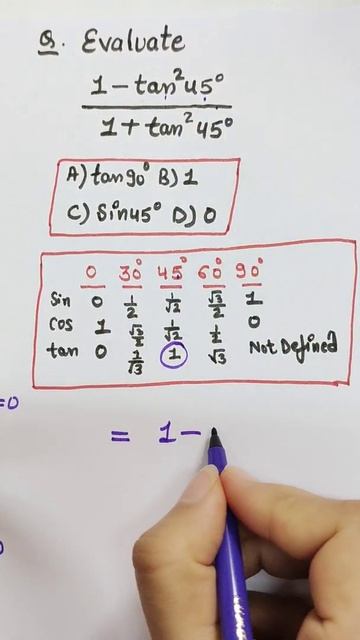 Q. Evaluate
1 - tan²45°
1 + tan²45°
A) tan90° B) 1
C) Sin45° D) 0
0 30° 45° 60° 90°
Sin 0 1/2 1/√2 √3/2 1
Cos 1 √3/2 1/√2 1/2 0
tan 0 1/√3 1 √3 Not Defined
=0
= 1 -